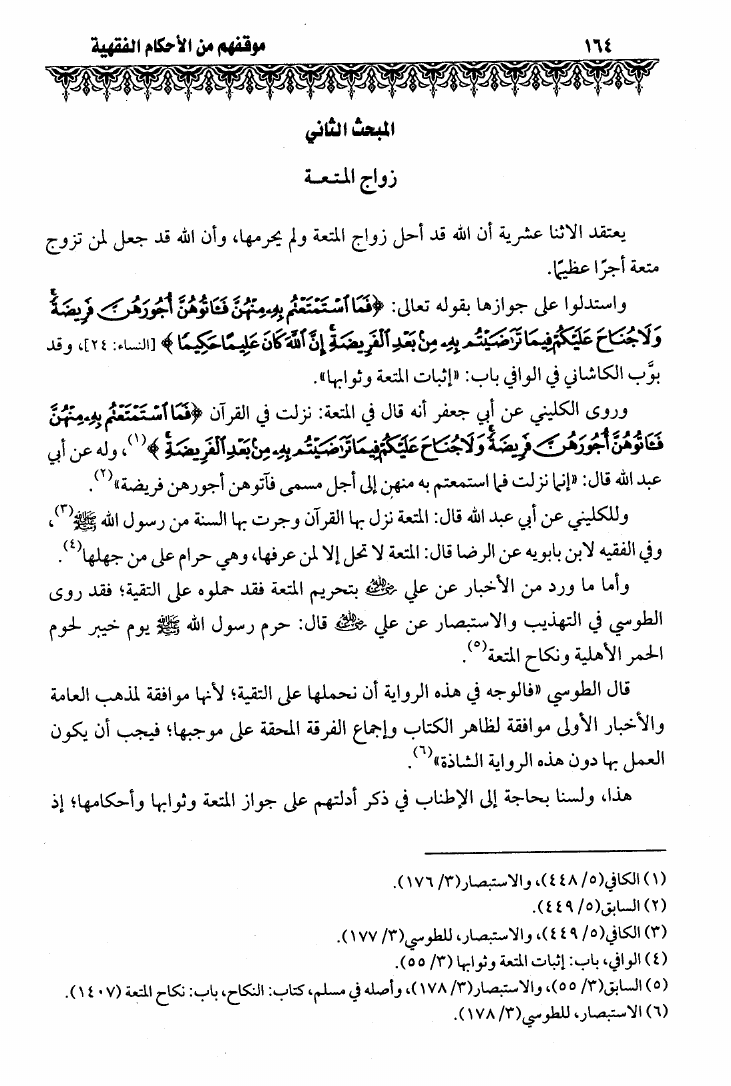 ١٦٤
موقفهم من الأحكام الفقهية
المبحث الثاني
زواج المتعـة
يعتقد الاثنا عشرية أن الله قد أحل زواج المتعة ولم يحرمها، وأن الله قد جعل لمن تزوج
متعة أجرًا عظيمًا.
واستدلوا على جوازها بقوله تعالى: ﴿فَمَا ٱسْتَمْتَعْتُم بِهِۦ مِنْهُنَّ فَـَٔاتُوهُنَّ أُجُورَهُنَّ فَرِيضَةً ۚ
وَلَا جُنَاحَ عَلَيْكُمْ فِيمَا تَرَٰضَيْتُم بِهِۦ مِنۢ بَعْدِ ٱلْفَرِيضَةِ ۚ إِنَّ ٱللَّهَ كَانَ عَلِيمًا حَكِيمًا ﴾ [النساء: ٢٤]، وقد
بوَّب الكاشاني في الوافي باب: «إثبات المتعة وثوابها».
وروى الكليني عن أبي جعفر أنه قال في المتعة: نزلت في القرآن ﴿فَمَا ٱسْتَمْتَعْتُم بِهِۦ مِنْهُنَّ
فَـَٔاتُوهُنَّ أُجُورَهُنَّ فَرِيضَةً ۚ وَلَا جُنَاحَ عَلَيْكُمْ فِيمَا تَرَٰضَيْتُم بِهِۦ مِنۢ بَعْدِ ٱلْفَرِيضَةِ ۚ ﴾(١)، وله عن أبي
عبد الله قال: «إنما نزلت فما استمعتم به منهن إلى أجل مسمى فآتوهن أجورهن فريضة»(٢).
وللكليني عن أبي عبد الله قال: المتعة نزل بها القرآن وجرت بها السنة من رسول الله ﷺ(٣)،
وفي الفقيه لابن بابويه عن الرضا قال: المتعة لا تحل إلا لمن عرفها، وهي حرام على من جهلها(٤).
وأما ما ورد من الأخبار عن علي رضي الله عنه بتحريم المتعة فقد حملوه على التقية؛ فقد روى
الطوسي في التهذيب والاستبصار عن علي رضي الله عنه قال: حرم رسول الله ﷺ يوم خيبر لحوم
الحمر الأهلية ونكاح المتعة(٥).
قال الطوسي «فالوجه في هذه الرواية أن نحملها على التقية؛ لأنها موافقة لمذهب العامة
والأخبار الأولى موافقة لظاهر الكتاب وإجماع الفرقة المحقة على موجبها؛ فيجب أن يكون
العمل بها دون هذه الرواية الشاذة»(٦).
هذا، ولسنا بحاجة إلى الإطناب في ذكر أدلتهم على جواز المتعة وثوابها وأحكامها؛ إذ
(١) الكافي(٥/ ٤٤٨)، والاستبصار(٣/ ١٧٦).
(٢) السابق(٥/ ٤٤٩).
(٣) الكافي(٥/ ٤٤٩)، والاستبصار، للطوسي(٣/ ١٧٧).
(٤) الوافي، باب: إثبات المتعة وثوابها (٣/ ٥٥).
(٥) السابق(٣/ ٥٥)، والاستبصار(٣/ ١٧٨)، وأصله في مسلم، كتاب: النكاح، باب: نكاح المتعة (١٤٠٧).
(٦) الاستبصار، للطوسي(٣/ ١٧٨).